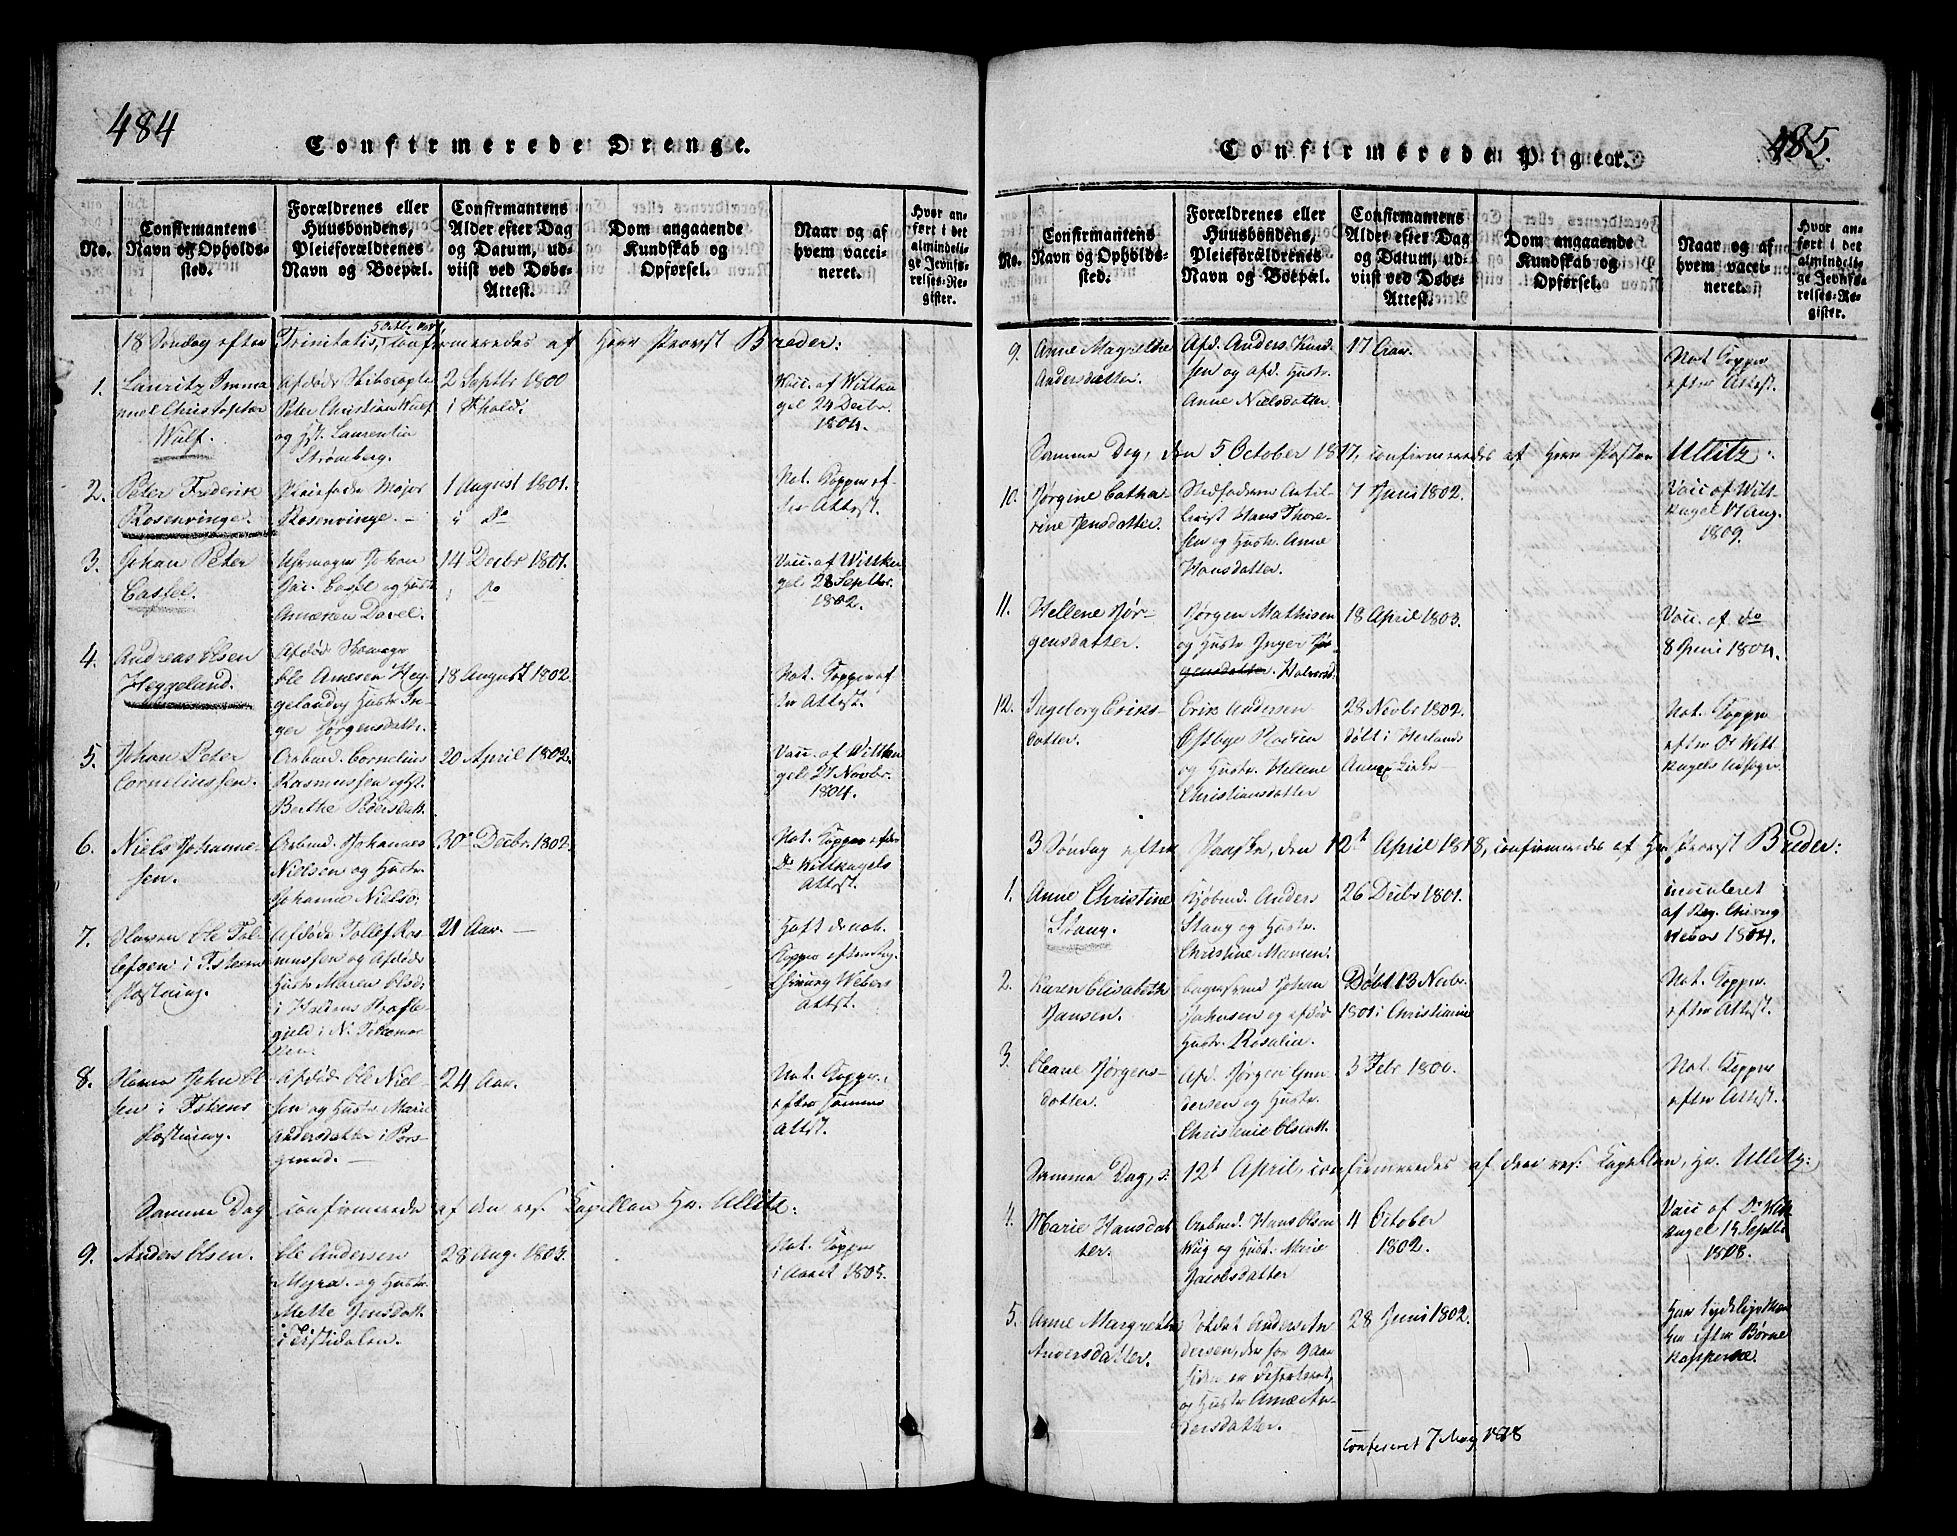 484
Confirmerede Drenge.
No.
Confirmantens
Navn og Opholds-
sted.
Forældrenes eller
Huusbondens,
Pleieforældrenes
Navn og Boepæl.
Confirmantens
Alder efter Dag
og Datum, ud-
viist ved Døbe-
Attest.
Dom angaaende
Kundskab og
Opførsel.
Naar og af
hvem vacci-
neret.
Hvor an-
ført i det
almindeli-
ge Jevnfø-
relses-Re-
gister.
18 Søndag efter Trinitatis, 5 Octbr confirmeredes af Herr Provst Breder:
1.
Lauritz Imma
nuel Christopher
Wulf.
Afdøde
Peter Christian Wulf
og Laurentia
Strømberg.
2 Septbr 1800
i Fhald:
Vacc. af Wittku
gel 24 Decbr.
1804.
2.
Peter Frederik
Rosenvinge.
Major
Rosenvinge.
1 August 1801.
i do
Nat. Kopper ef
ter Attest.
3.
Johan Peter
Castel.
Johan
Castel og Hustr
Davel.
14 Decbr 1801.
i do
Vacc. af Wittku
gel 28 Septbr.
1802.
4.
Andreas Olsen
Heggeland.
Afdøde
Ole Amesen Heg-
geland og Hustr In-
ger Jørgensdattr.
18 August 1802.
Nat. Kopper ef
ter Attest.
5.
Johan Peter
Corneliussen.
Arbmd. Cornelius
Rasmussen og
Berthe Pedersdatt.
20 April 1802.
Vacc. af Wittku
gel 27 Novbr.
1804.
6.
Niels Johanne-
sen.
Arbmd. Johannes
Nielsen og Hustr.
Johanne Nielsd.
30 Decbr. 1802.
Nat. Kopper efter
Dr Wittkugels
Attest.
7.
Ole Tol-
lefsen i
Afdøde Tollef Ras-
mussen og Afdøde
Hustr Maren Olsd.
i
21 Aar.
Haft de nat.
Kopper efter
Webers
Attest.
8.
John Ol-
sen i
Afdøde Ole Niel-
sen og Hustr Marie
Andersdatter i Pors-
grund.
24 Aar.
Nat. Kopper,
efter samme
Attest.
Samme Dag confirmerede af den res. Kapellan Hr. Ullitz:
9.
Anders Olsen.
Ole Andersen
Myra og Hustr.
Mette Jensdatt.
i Tistedalen.
28 Aug. 1803.
Nat. Kopper
i Aaret 1805.
485.
Confirmerede Piger.
No.
Confirmantens
Navn og Opholds-
sted.
Forældrenes eller
Huusbondens,
Pleieforældrenes
Navn og Boepæl.
Confirmantens
Alder efter Dag
og Datum, ud-
viist ved Døbe-
Attest.
Dom angaaende
Kundskab og
Opførsel.
Naar og af
hvem vacci-
neret.
Hvor an-
ført i det
almindeli-
ge Jevnfø-
relses-Re-
gister.
9.
Anne Magrethe
Andersdatter.
Afd. Anders Knud-
sen og afd. Hustr.
Anne Nielsdatter.
17 Aar.
Nat. Kopper
efter Attest.
Samme Dag, den 5 October 1817, confirmeredes af Herr Pastor Ullitz:
10.
Jørgine Catha-
rine Jensdatter.
Stedfaderen Artil-
lerist Hans Thore-
sen og Hustr. Anne
Hansdatter.
7 Juni 1802.
Vacc af Witt-
kugel 17 Aug.
1809.
11.
Hellene Jør-
gensdatter.
Jørgen Mathisen
og Hustr Inger Jør-
gensdatter. Halvorsd.
18 April 1803.
Vacc. af do
8 Juni 1804.
12.
Ingeborg Eriks-
datter.
Erik Andersen
Østbye
og Hustr. Hellene
Christiansdatter
28 Novbr 1802.
døbt i
Annex Kirke
Nat. Kopper
efter Dr Witt
kugels Udsagn
3 Søndag efter Paaske, den 12te April 1818, confirmeredes af Hr Provst Breder:
1.
Anne Christine
Stang.
Kjøbmd. Anders
Stang og Hustr.
Christine Mamen.
26 Decbr 1801.
inoculeret
af Reg. Chirurg
Weber 1804.
2.
Karen Elisabeth
Jansen.
Johan
Johnsen og afdød
Hustr. Rosalin.
Døbt 13 Novbr.
1801 i Christiania
Nat. Kopper
efter Attest.
3.
Oleane Jørgens-
datter.
Afd. Jørgen Gun-
dersen og Hustr.
Christine Olsdatt.
3 Febr 1800.
Nat. Kopper
efter Attest.
Samme Dag, d: 12t April, confirmeredes af den res: Kapellan, Hr. Ullitz:
4.
Marie Hansdat-
ter.
Arbmd. Hans Olsen
Wiig og Hust. Marie
Jacobsdatter
4 October
1802.
Vacc af Dr Witt
kugel 15 Septbr
1808.
5.
Anne Margrethe
Andersdatter.
Soldat Anders An
dersen, der for 9 Aar
siden er deserteret,
og Hustr Anne An-
dersdatter.
28 Juni 1802.
Har tydelige
efter Børne
kopperne.
Confereret 7 Maj 1818